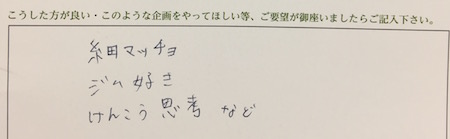 こうした方が良い・このような企画をやってほしい等、ご要望が御座いましたらご記入下さい。
細田マッチョ
ジム好き
けんこう思考 など